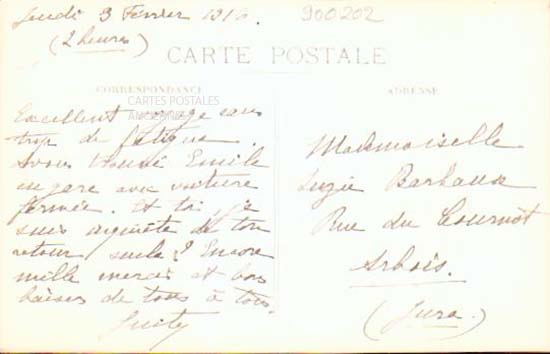 Jeudi 3 Février 1916.
900202
(2 heures)
CARTE POSTALE
CORRESPONDANCE
CARTES POSTALES
ANCIENNES
ADRESSE
Excellent voyage sans
trop de fatigue.
Avons trouvé Emile
en gare avec voiture
fermée. Et toi, je
suis inquiète de ton
retour seule? Encore
mille mercis et bons
baisers de tous à tous.
Mademoiselle
Suzie Barbaux
Rue du Courcot
Arbois.
(Jura)